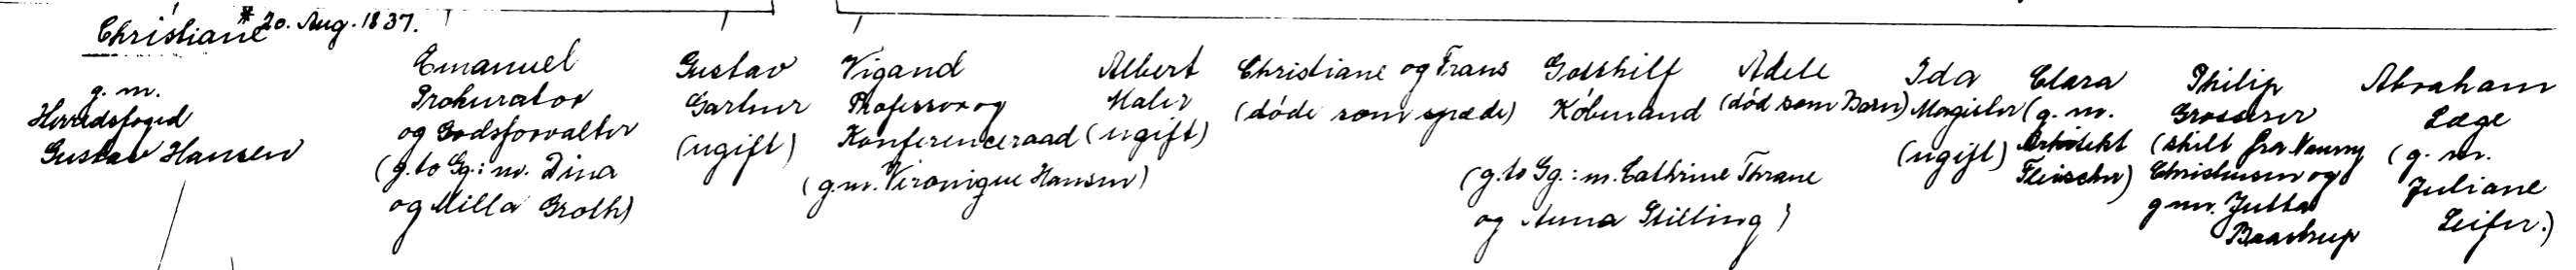 Christiane *20. Aug. 1837.
g. m.
Herredsfoged
Gustav Hansen
Emanuel
Prokurator
og Godsforvalter
(g. to Gg.: m. Dina
og Milla Groth)
Gustav
Gartner
(ugift)
Vigand
Professor og
Konferenceraad
(g. m. Veronique Hansen)
Albert
Maler
(ugift)
Christiane og Frans
(døde som spæde)
Gotthilf
Købmand
(g. to Gg.: m. Cathrine Thrane
og Anna Stilling)
Adele
(død som Barn)
Ida
(ugift)
Clara
(g. m.
Arkitekt
Fleischer)
Philip
Grosserer
(skilt fra Nanny
Christensen og
g m. Jutta
Baastrup
Abraham
Læge
(g. m.
Juliane
Leifer.)